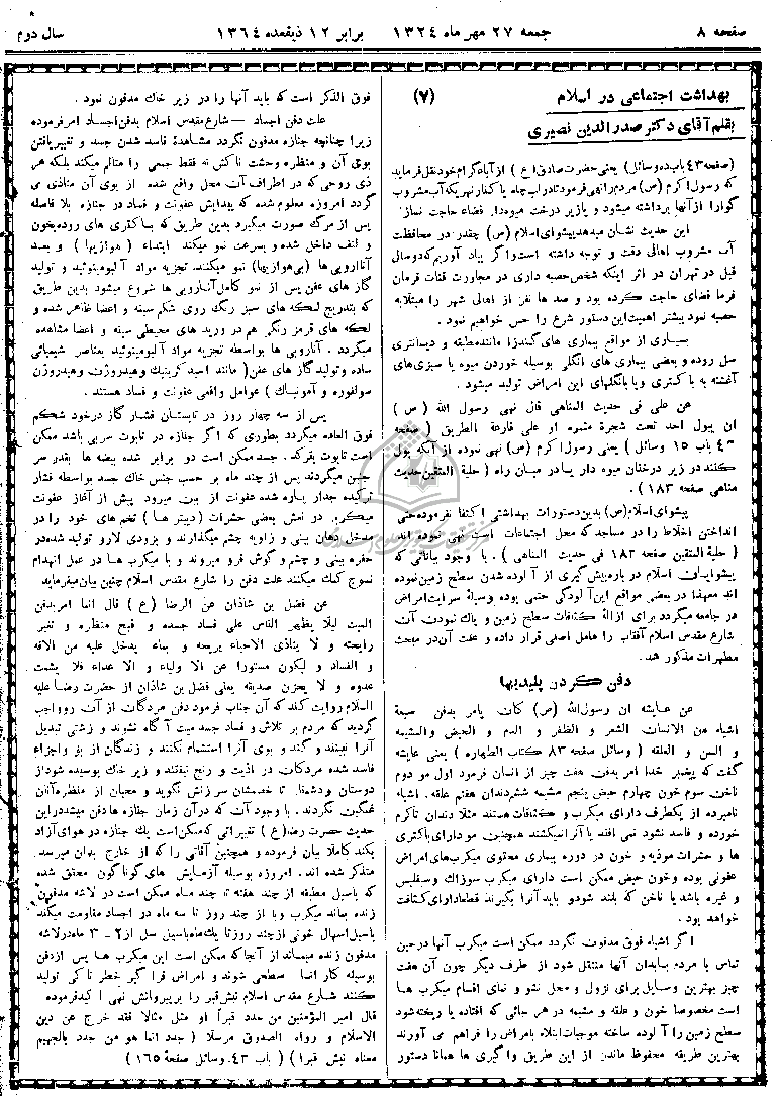 صفحه ۸
جمعه ۲۷ مهر ماه ۱۳۲۴
برابر ۱۲ ذیقعده ۱۳۶۴
سال دوم
بهداشت اجتماعی در اسلام (۷)
بقلم آقای دکتر صدرالدین نصیری
(صفحه ۴۳ باب ده وسائل) یعنی حضرت صادق (ع) از آباء گرام خود نقل فرماید
که رسول اکرم (ص) مردم را نهی فرمود تا در لب چاه یا کنار نهر یکه آب مشروب
گوارا از آنها برداشته میشود و یا زیر درخت میوه دار قضاء حاجت نمایند
این حدیث نشان میدهد پیشوای اسلام (ص) چقدر در محافظت
آب مشروب اهالی دقت و توجه داشته است و اگر بیاد آوریم که دو سال
قبل در تهران در اثر اینکه شخص حصبه داری در مجاورت قنات فرمان
فرما قضای حاجت کرده بود و صد ها نفر از اهالی شهر را مبتلا به
حصبه نمود بیشتر اهمیت این دستور شرع را حس خواهیم نمود .
بسیاری از مواقع بیماری های کندزا مانند مطبقه و دیسانتری
سل روده و بعضی بیماری های انگلی بوسیله خوردن میوه یا سبزی‌های
آغشته به باکتری و یا با انگلهای این امراض تولید میشود .
عن علی فی حدیث المناهی قال نهی رسول الله (ص)
ان یبول احد تحت شجرة مثمره او علی قارعة الطریق ( صفحه
۴۳ باب ۱۵ وسائل ) یعنی رسول اکرم (ص) نهی نموده از آنکه بول
کنند در زیر درختان میوه دار یا در میان راه ( حلیة المتقین حدیث
مناهی صفحه ۱۸۳ ) .
پیشوای اسلام (ص) بدین دستورات بهداشتی اکتفا نفرموده حتی
انداختن اخلاط را در مساجد که محل اجتماعات است نهی نموده اند
( حلیة المتقین صفحه ۱۸۳ فی حدیث المناهی ) . با وجود بیاناتی که
پیشوایان اسلام در باره پیش گیری از آلوده شدن سطح زمین نموده
اند معهذا در بعضی مواقع این آلودگی حتمی بوده وسیلهٔ سرایت امراض
در جامعه میگردد برای ازالهٔ کثافات سطح زمین و پاك نمودن آن
شارع مقدس اسلام آفتاب را عامل اصلی قرار داده و علت آن در مبحث
مطهرات مذکور شد .
دفن کردن پلیدیها
عن عایشه ان رسول الله (ص) کان یامر بدفن سبعة
اشیاء من الانسان الشعر و الظفر و الدم و الحیض والمشیمه
و السن و العلقه ( وسائل صفحه ۸۳ کتاب الطهاره ) یعنی عایشه
گفت که پیغمبر خدا امر بدفن هفت چیز از انسان فرمود اول مو دوم
ناخن سوم خون چهارم حیض پنجم مشیمه ششم دندان هفتم علقه . اشیاء
نامبرده از یکطرف دارای میکرب و کثافات هستند مثلا دندان تا کرم
خورده و فاسد نشود نمی افتد یا آنرا نمیکشند همچنین مو دارای باکتری
ها و حشرات موذیه و خون در دوره بیماری محتوی میکرب‌های امراض
عفونی بوده و خون حیض ممکن است دارای میکرب سوزاك و سفلیس
و غیره باشد یا ناخن که بلند شود و باید آنرا بگیرند قطعا دارای کثافت
خواهد بود .
اگر اشیاء فوق مدفون نگردد ممکن است میکرب آنها در حین
تماس با مردم بابدان آنها منتقل شود از طرف دیگر چون آن هفت
چیز بهترین وسایل برای نزول و محل نشو و نمای اقسام میکرب ها
است مخصوصا خون و علقه و مشیمه در هر جائی که افتاده یا ریخته شود
سطح زمین را آلوده ساخته موجبات ابتلاء بامراض را فراهم می آورند
بهترین طریقه محفوظ ماندن از این طریق واگیری ها همانا دستور
فوق الذکر است که باید آنها را در زیر خاك مدفون نمود .
علت دفن اجساد — شارع مقدس اسلام بدفن اجساد امر فرموده
زیرا چنانچه جنازه مدفون نگردد مشاهدهٔ فاسد شدن جسد و تغییر یافتن
بوی آن و منظره وحشت ناکش نه فقط جمعی را متالم میکند بلکه هر
ذی روحی که در اطراف آن محل واقع شده از بوی آن متاذی می
گردد امروزه معلوم شده که پیدایش عفونت و فساد در جنازه بلا فاصله
پس از مرگ صورت میگیرد بدین طریق که باکتری های روده بخون
و انف داخل شده و بسرعت نمو میکند ابتداء ( هوازیها ) و بعد
آناآروبی ها (بی هوازیها) نمو میکنند. تجزیه مواد آلبومینوئید و تولید
گاز های عفن پس از نمو کامل آناآروبی ها شروع میشود بدین طریق
که بتدریج لکه های سبز رنگ روی شکم سینه و اعضا ظاهر شده و
لکه های قرمز رنگی هم در ورید های محیطی سینه و اعضا مشاهده
میگردد . آناآروبی ها بواسطه تجزیه مواد آلبومینوئید بعناصر شیمیائی
ساده و تولید گاز های عفن ( مانند اسید کربنیك و هیدروژن و هیدروژن
سولفوره و آمونیاك ) عوامل واقعی عفونت و فساد هستند .
پس از سه چهار روز در تابستان فشار گاز در خود شکم
فوق العاده میگردد بطوری که اگر جنازه در تابوت سربی باشد ممکن
است تابوت بترکد . جسد ممکن است دو برابر شده بیضه ها بقدر سر
جنین میگردند پس از چند ماه بر حسب جنس خاك جسد بواسطه فشار
ترکیده جدار پاره شده عفونت از بین میرود پیش از آغاز عفونت
میکربی در نعش بعضی حشرات ( دیپتر ها ) تخم های خود را در
مدخل دهان بینی و زاویه چشم میگذارند و بزودی لارو تولید شده در
حفره بینی و چشم و گوش فرو میروند و با میکرب ها در عمل انهدام
نسوج کمك میکنند علت دفن را شارع مقدس اسلام چنین بیان میفرماید
عن فضل بن شاذان عن الرضا ( ع ) قال انما امر بدفن
المیت لئلا یظهر الناس علی فساد جسده و قبح منظره و تغیر
رایحته و لا یتاذی الاحیاء بریحه و بماء یدخل علیه من الافه
و الفساد و لیکون مستورا عن الاولیاء و الاعداء فلا یشمت
عدوه و لا یحزن صدیقه یعنی فضل بن شاذان از حضرت رضا علیه
السلام روایت کند که آن جناب فرمود دفن مردگان از آن رو واجب
گردید که مردم بر تلاش و فساد جسد میت آگاه نشوند و زشتی تبدیل
آنرا نبینند و گند و بوی آنرا استشمام نکنند و زندگان از بو و اجزاء
فاسد شده مردگان در اذیت و رنج نیفتند و زیر خاك پوشیده شود از
دوستان و دشمنان تا خصمشان سرزنش نگوید و محبان از منظره آنان
غمگین نگردند . با وجود آن که در آن زمان جنازه ها دفن میشد در این
حدیث حضرت رضا (ع ) تغییراتی که ممکن است یك جنازه در هوای آزاد
بکند کاملا بیان فرموده و همچنین آفاتی را که از خارج بدان میرسد
متذکر شده اند . امروزه بوسیله آزمایش های گوناگون محقق شده
که باسیل مطبقه از چند هفته تا چند ماه ممکن است در لاشه مدفون
زنده بماند میکرب وبا از چند روز تا سه ماه در اجساد مقاومت میکند
باسیل اسهال خونی از چند روز تا یك ماه باسیل سل از ۲ - ۳ ماه در لاشه
مدفون زنده میماند از آنجا که ممکن است این میکرب ها پس از دفن
بوسیله کار انما سطحی شوند و امراض فرا گیر خطر ناکی تولید
کنند شارع مقدس اسلام نبش قبر را بر پیروانش نهی اکید فرموده
قال امیر المؤمنین من جدد قبراً او مثل مثالا فقد خرج عن دین
الاسلام و رواه الصدوق مرسلا ( جدد انما هو من جدد بالجیم
معناه نبش قبرا ) ( باب ۴۳ وسائل صفحهٔ ۱۶۵ )